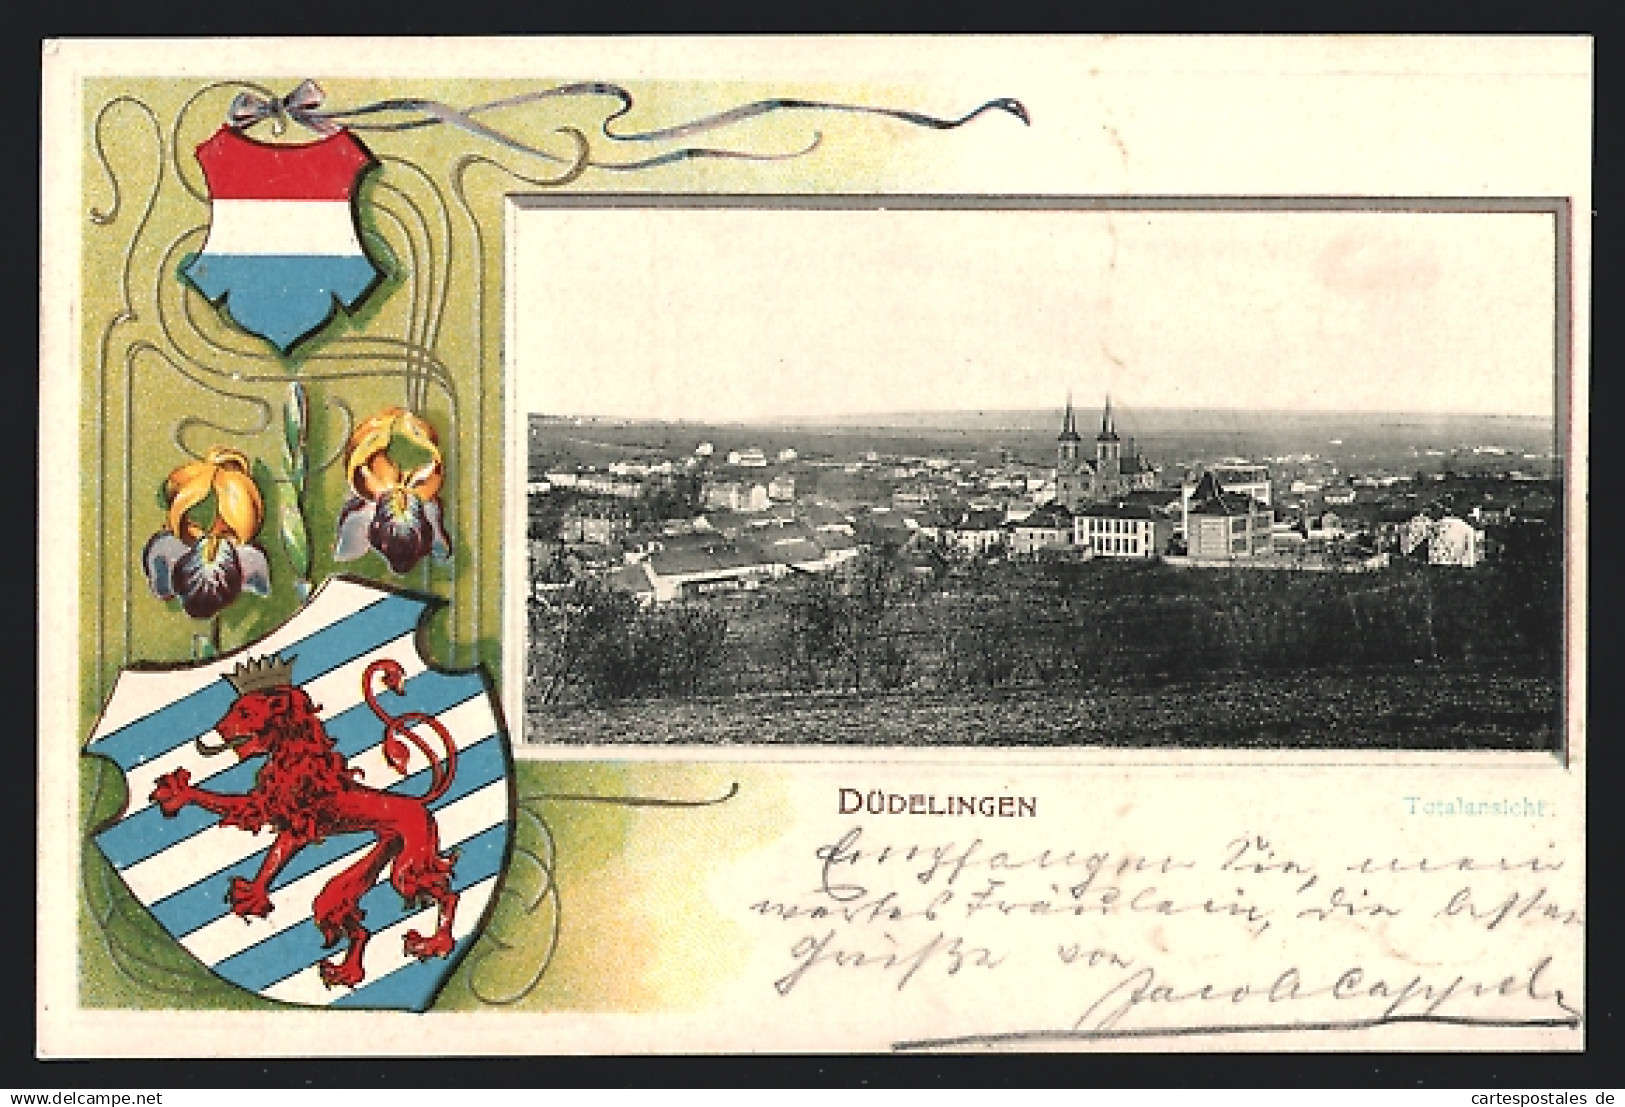 DÜDELINGEN
Totalansicht.
Empfangen Sie, mein
wertes Fräulein, die besten
Grüße von
Jacob Cappel.
hippostcard.com
cartespostales.de